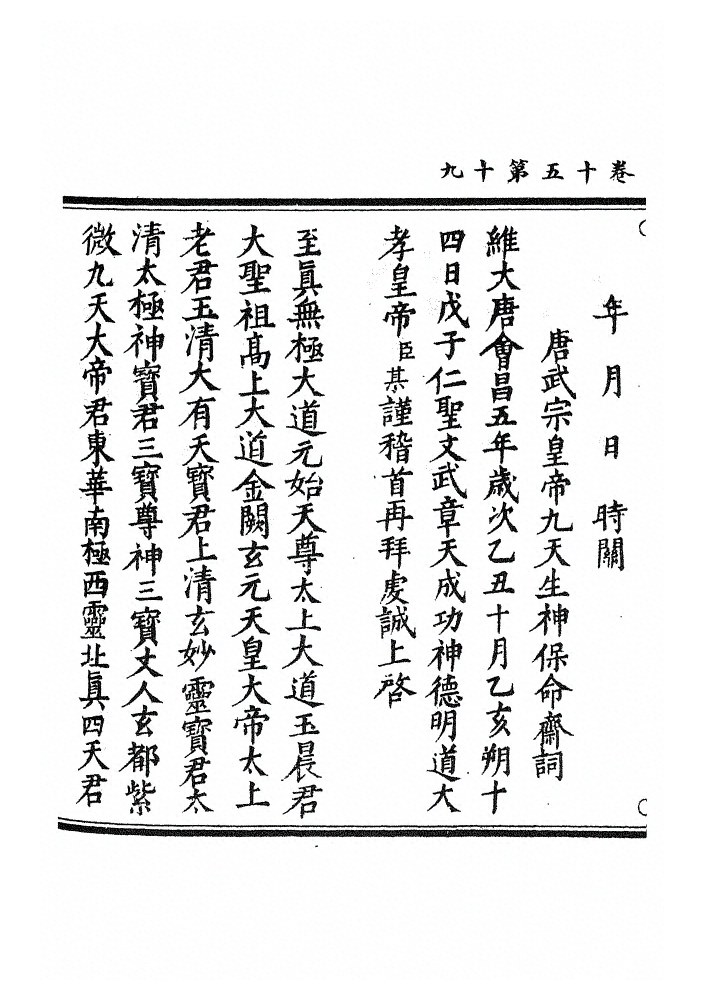 卷十五第十九
年月日時關
唐武宗皇帝九天生神保命齋詞
維大唐會昌五年歲次乙丑十月乙亥朔十
四日戊子仁聖文武章天成功神德明道大
孝皇帝臣某謹稽首再拜虔誠上啓
至眞無極大道元始天尊太上大道玉晨君
大聖祖高上大道金闕玄元天皇大帝太上
老君玉清大有天寶君上清玄妙靈寶君太
清太極神寶君三寶尊神三寶丈人玄都紫
微九天大帝君東華南極西靈北眞四天君